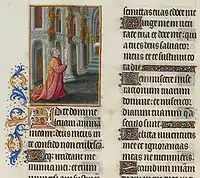 Ad te domine
leuaui animam
meam: deus meus in
te confido non erubescā
Neq; irrideant me
inimici mei: etenim
semitas tuas edoce me
Dirige me in veri
tate tua et doce me: qui
a tu es deus saluator
meus et te sustinui to
ta die
Reminiscere mise
rationum tuarum
domine: et misericor
diarum tuarum que
a seculo sunt
Delicta iuuentutis
mee et ignorancias
meas ne memineris
Secundum miam